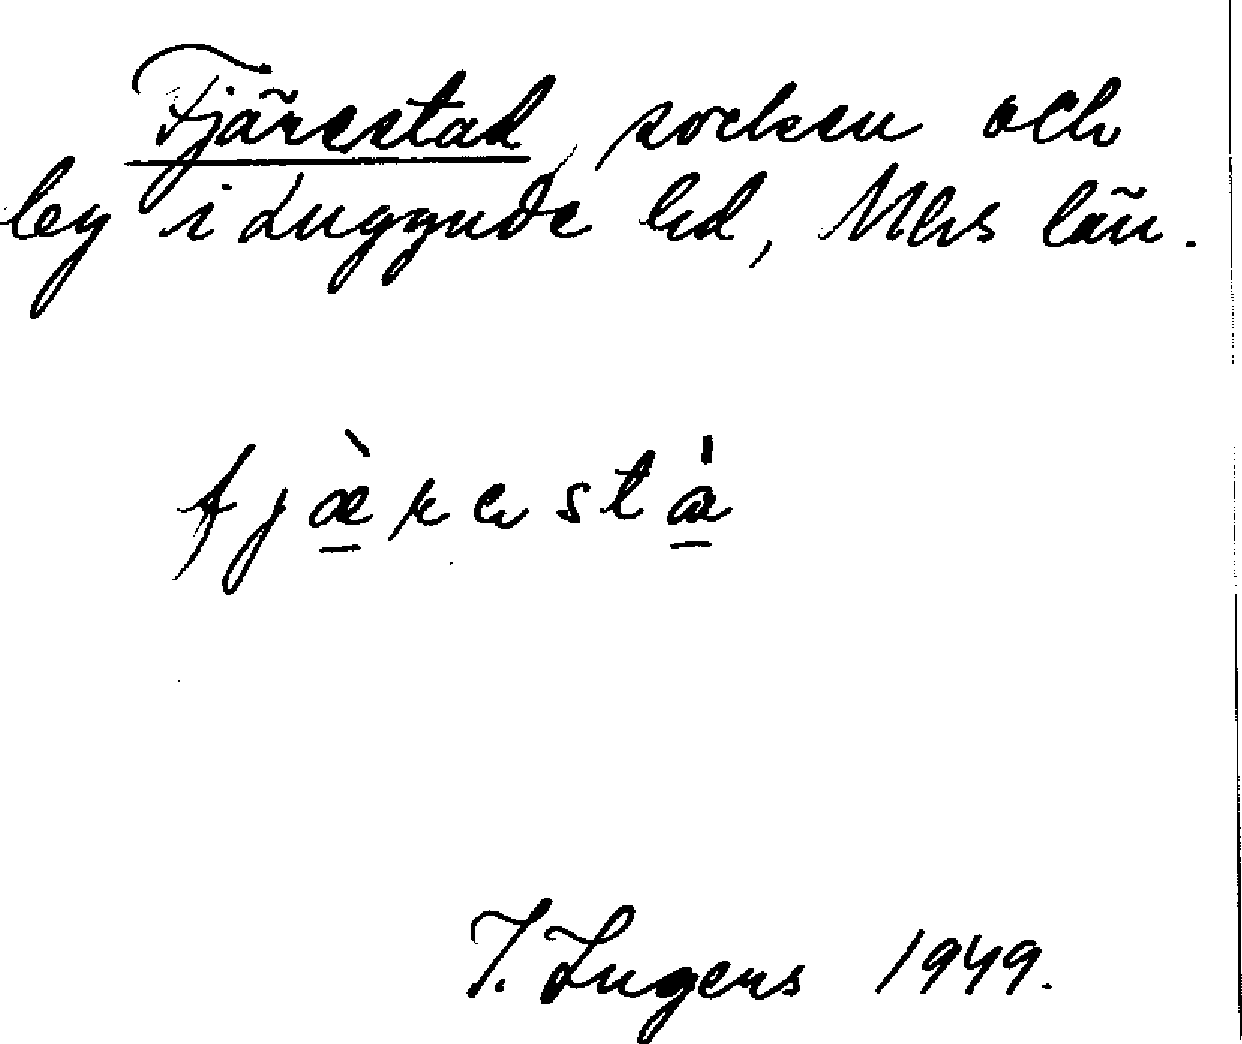 Fjärestad, socken och
by i Luggude hd, Mhs län.
fjæ̠̀restà̠
I. Ingers 1949.